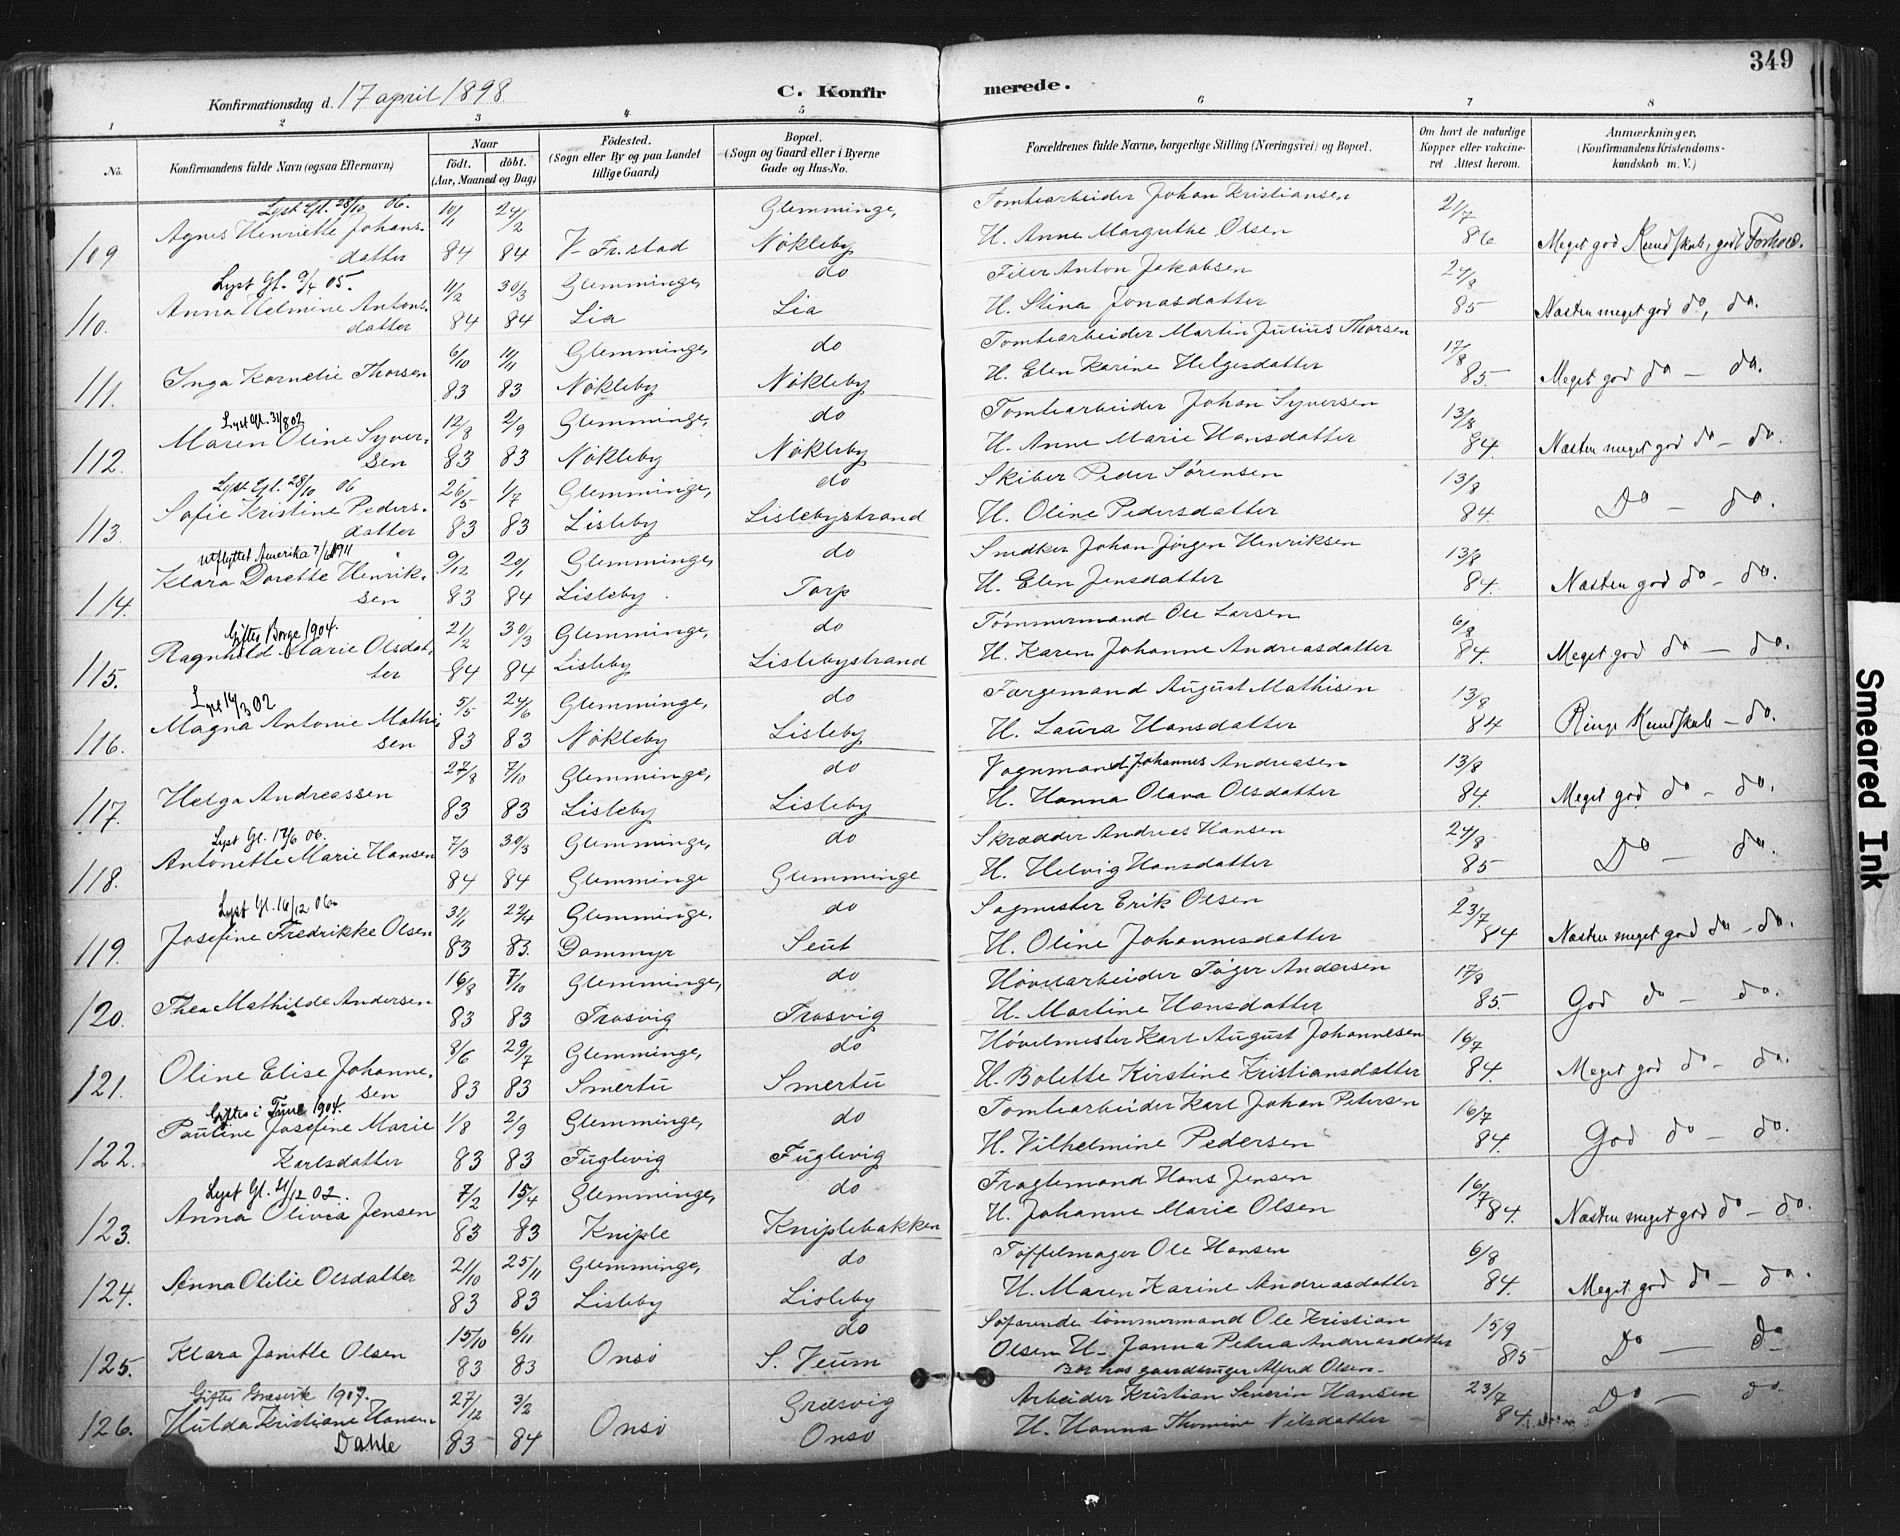 349
Konfirmationsdag d. 17 april 1898
C. Konfirmerede.
1 2 3 4 5 6 7 8
No.
Konfirmandens fulde Navn (ogsaa Efternavn)
Naar
födt. döbt.
(Aar, Maaned og Dag)
Födested.
(Sogn eller By og paa Landet
tillige Gaard)
Bopæl.
(Sogn og Gaard eller i Byerne
Gade og Hus-No.
Forældrenes fulde Navne, borgerlige Stilling (Næringsvei) og Bopæl.
Om havt de naturlige
Kopper eller vakcine-
ret. Attest herom.
Anmærkninger.
(Konfirmandens Kristendoms-
kundskab m. V.)
Lyst Gl. 28/10 06.
109 Agnes Henriette Johans- 10/1 24/2 Glemminge, Tomtearbeider Johan Kristiansen 21/7
datter 84 84 V. Fr.stad Nökleby H. Anne Margrethe Olsen 86 Meget god Kundskab, godt Forhold.
Lyst Gl. 9/4 05.
110. Anna Helmine Antons- 11/2 30/3 Glemminge, do Filer Anton Jakobsen 24/8
datter 84 84 Lia Lia H. Stina Jonasdatter 85 Næsten meget god do, do.
111. Inga Kornelie Thorsen 6/10 11/11 Glemminge, do Tomtearbeider Martin Julius Thorsen 17/8
83 83 Nökleby Nökleby H. Elen Karine Helgesdatter 85. Meget god do - do.
Lyst Gl. 31/8 02
112. Maren Oline Syver- 12/8 2/9 Glemminge, do Tomtearbeider Johan Syversen 13/8
sen 83 83 Nökleby Nökleby H. Anne Marie Hansdatter 84. Næsten meget god do - do.
Lyst Gl. 28/10 06
113. Sofie Kristine Peders- 26/5 1/7 Glemminge, do Skiber Peder Sörensen 13/8
datter 83 83 Lisleby Lislebystrand H. Oline Pedersdatter 84. Do - do.
utflyttet Amerika 7/6 1911
114. Klara Dorette Henrik- 9/12 20/1 Glemminge, do Snedker Johan Jörgen Henriksen 13/8
sen 83 84 Lisleby. Torp H. Elen Jensdatter 84. Næsten god do - do.
Giftes Borge 1904.
115. Ragnhild Marie Olsdat- 21/2 30/3 Glemminge, do Tömmermand Ole Larsen 6/8
ter 84 84 Lisleby Lislebystrand H. Karen Johanne Andreasdatter 84. Meget god do - do.
Lyst 14/3 02
116. Magna Antonie Mathi- 5/5 24/6 Glemminge, do Fargemand August Mathisen 13/8
sen 83 83 Nökleby Lisleby H. Laura Hansdatter 84 Ringe Kundskab - do.
117. Helga Andreassen 27/8 7/10 Glemminge, do Vognmand Johannes Andreasen 13/8
83 83 Lisleby Lisleby H. Hanna Olava Olsdatter 84 Meget god do - do.
Lyst Gl. 17/6 06.
118. Antonette Marie Hansen 7/3 30/3 Glemminge, do Skrædder Andreas Hansen 24/8
84 84 Glemminge Glemminge H. Helvig Hansdatter 85 Do - do.
Lyst Gl. 16/12 06.
119. Josefine Fredrikke Olsen 31/1 22/4 Glemminge, do Sagmester Erik Olsen 23/7
83 83. Dammyr Seut H. Oline Johannesdatter 84 Næsten meget god do - do.
120. Thea Mathilde Andersen 16/8 7/10 Glemminge, do Hövelarbeider Töger Andersen 17/8
83 83 Trosvig Trosvig H. Martine Hansdatter 85 God do - do.
121. Oline Elise Johanne- 8/6 29/7 Glemminge, do Hövelmester Karl August Johannesen 16/7
sen 83 83 Smertu Smertu H. Bolette Kirstine Kristiansdatter 84. Meget god do - do.
Giftes i Tune 1904.
122. Pauline Josefine Marie 1/8 2/9 Glemminge, do Tomtearbeider Karl Johan Petersen 16/7
Karlsdatter 83 83 Fuglevig Fuglevig H. Vilhelmine Pedersen 84. God do - do.
Lyst Gl. 21/12 02.
123. Anna Olivia Jensen 7/2 15/4 Glemminge, do Fragtemand Hans Jensen 16/7
83 83 Kniple Kniplebakken H. Johanne Marie Olsen 84. Næsten meget god do - do.
124. Anna Otilie Olsdatter 21/10 25/11 Glemminge, do Töffelmager Ole Hansen 6/8
83 83 Lisleby Lisleby H. Maren Karine Andreasdatter 84. Meget god do - do.
125. Klara Janette Olsen 15/10 6/11 Onsö do Söfarende tömmermand Ole Kristian 15/9
83 83 S. Veum Olsen H. Janna Petrea Andreasdatter 85 Do - do
Bor hos gaardbruger Alfred Olsen.
Giftes Græsvik 1907.
126. Hulda Kristiane Hansen 27/12 3/2 Onsö Græsvig Arbeider Kristian Severin Hansen 23/7
Dahle 83 84 Onsö H. Hanna Thomine Nilsdatter 84. Do - do.
Smeared Ink